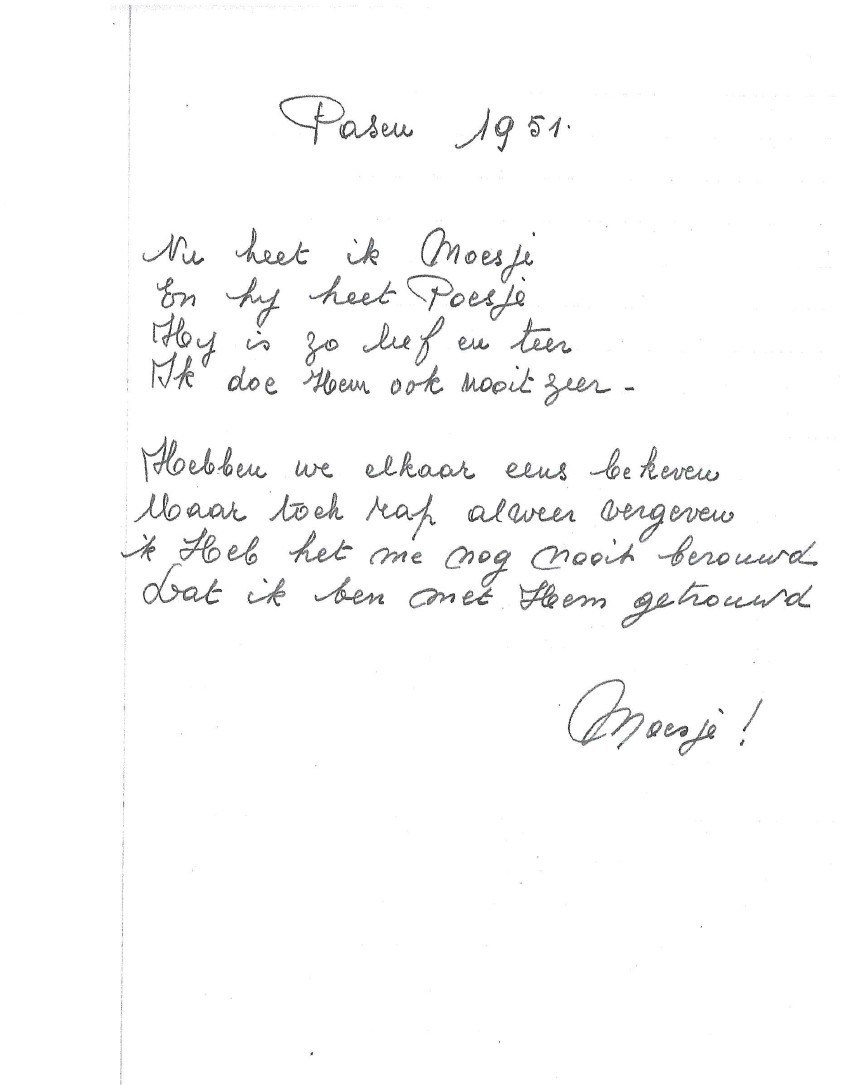 Pasen 1951.
Nu heet ik Moesje
En hij heet Poesje
Hij is zo lief en teer
Ik doe Hem ook nooit zeer -
Hebben we elkaar eens bekeven
Maar toch rap alweer vergeven
ik Heb het me nog nooit berouwd
Dat ik ben met Hem getrouwd
Moesje!